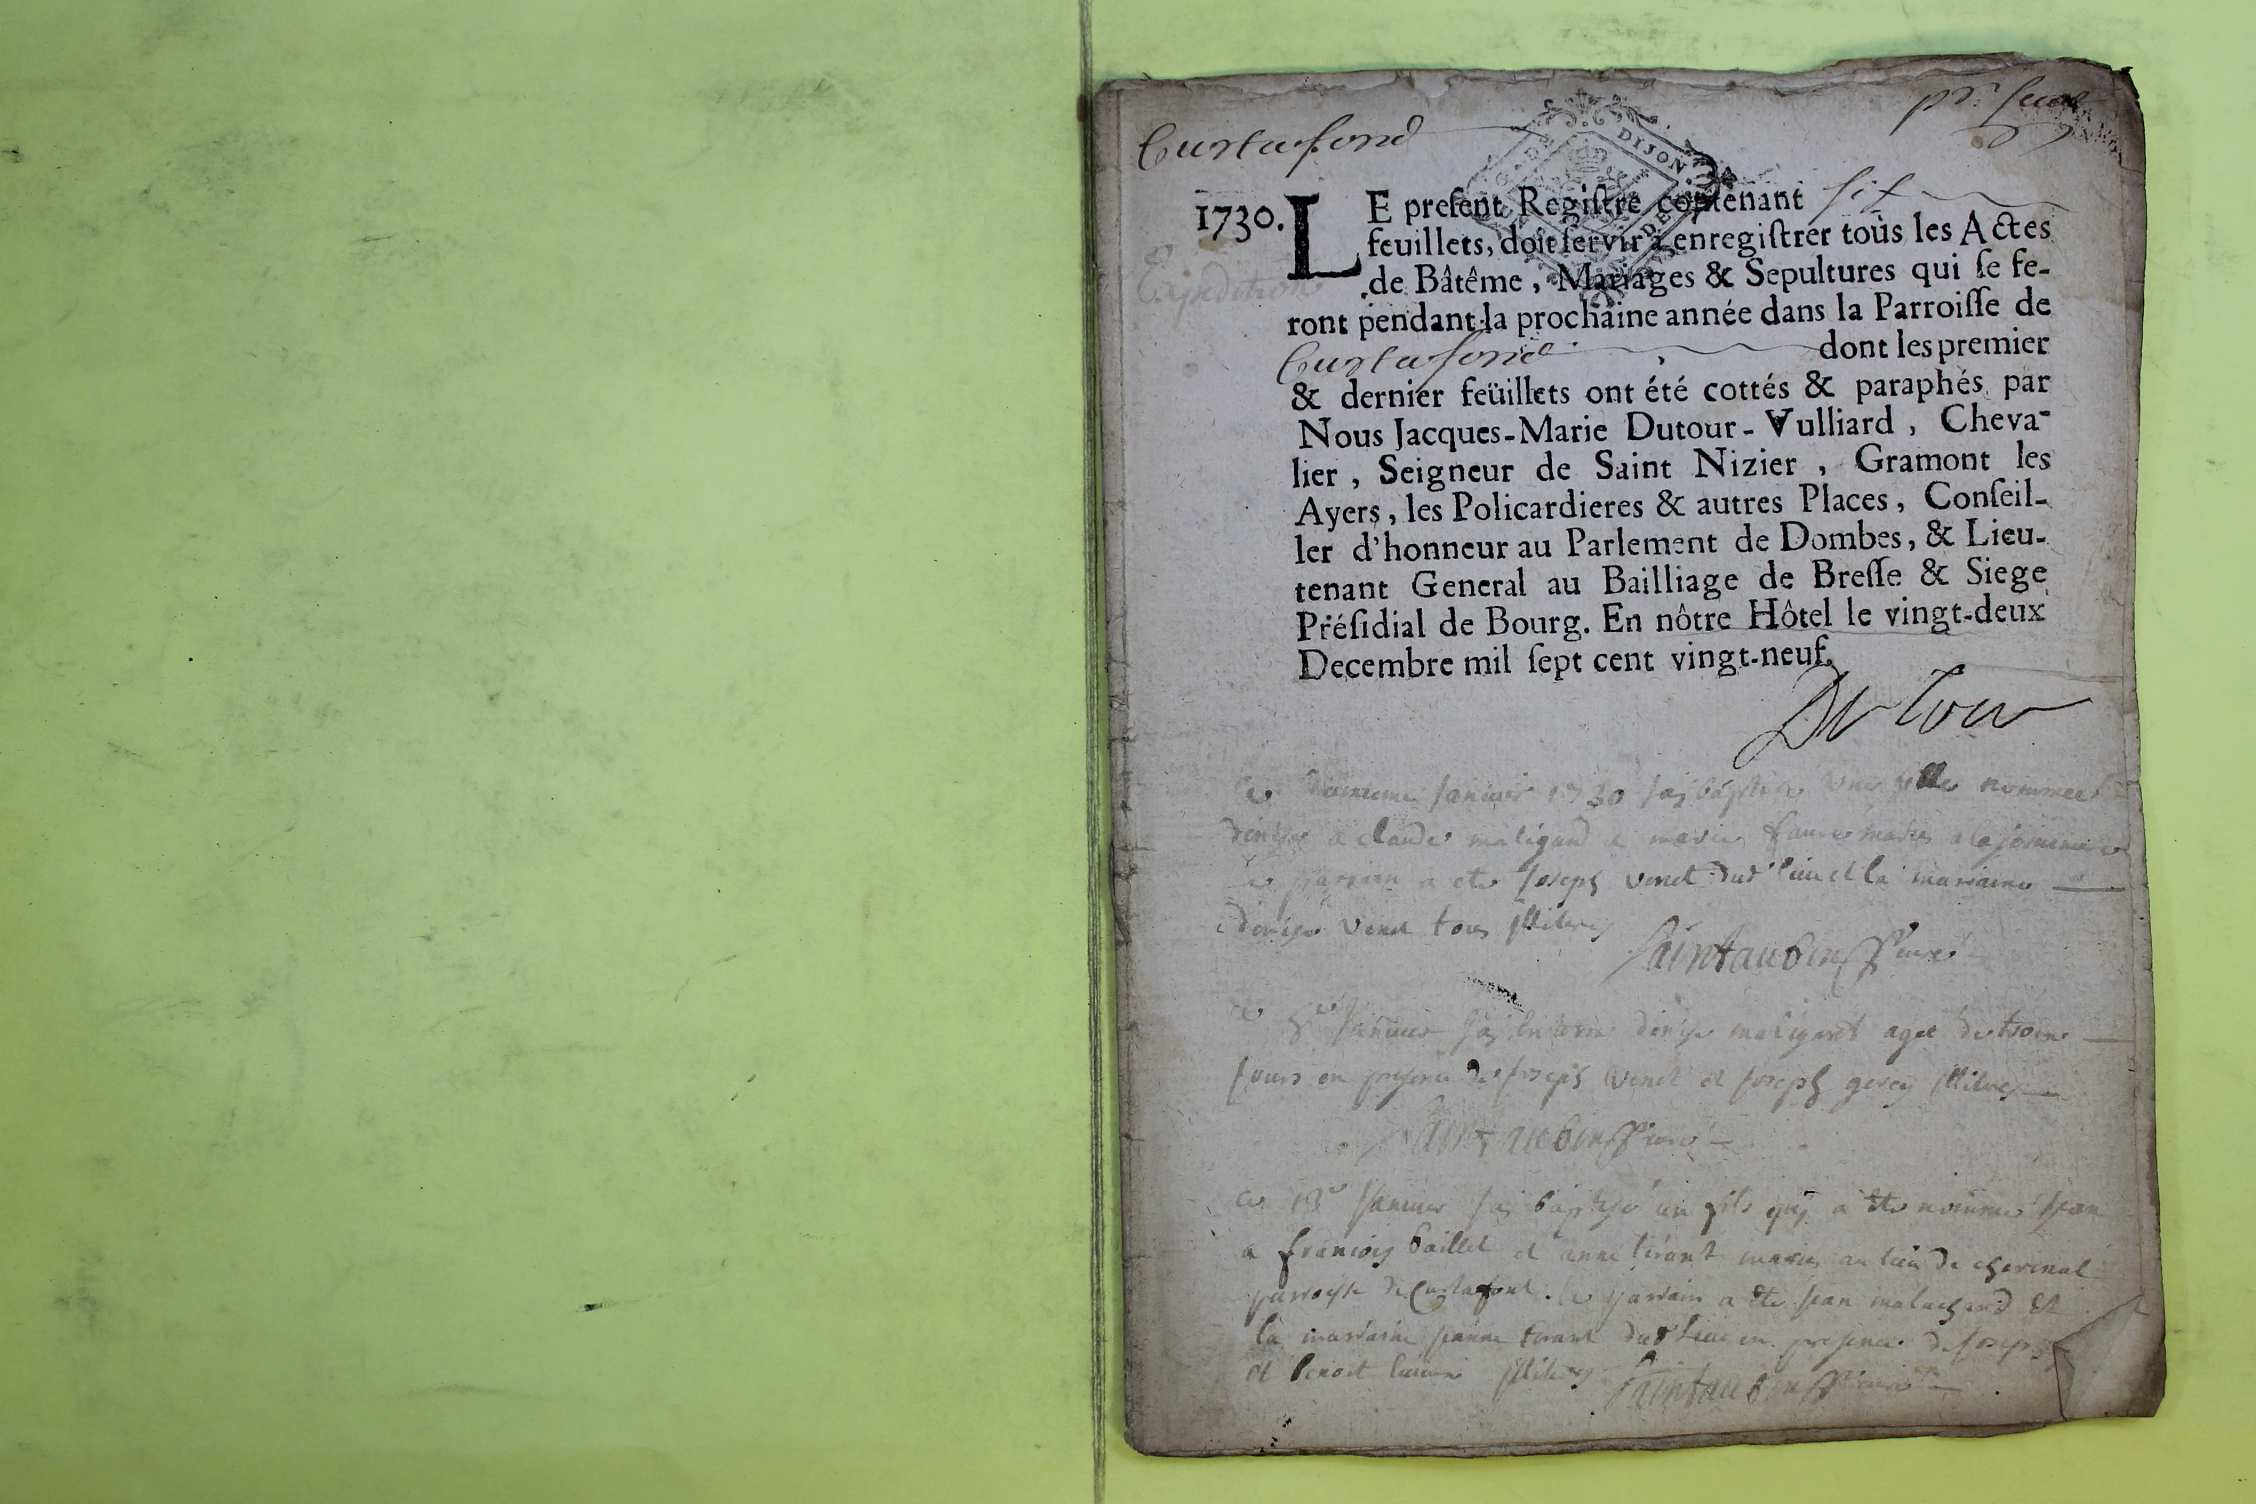 Curtafond
pr. feuil
G. DE DIJON
1730.
LE preſent Regiſtre contenant six
feuillets, doit ſervir à enregiſtrer tous les Actes
de Bâtême, Mariages & Sepultures qui ſe fe-
ront pendant la prochaine année dans la Parroiſſe de
Expedition
Curtafond dont les premier
& dernier feüillets ont été cottés & paraphés par
Nous Jacques-Marie Dutour-Vulliard, Cheva-
lier, Seigneur de Saint Nizier, Gramont les
Ayers, les Policardieres & autres Places, Conſeil-
ler d'honneur au Parlement de Dombes, & Lieu-
tenant General au Bailliage de Breſſe & Siege
Préſidial de Bourg. En nôtre Hôtel le vingt-deux
Decembre mil ſept cent vingt-neuf.
Dutour
Janvier 1730 jay baptise une fille nommee
denise a claude maligand et marie maries
le parrain a ete joseph venet dud lieu et la marraine
denise venet tous illiteres
Saintaubin curé
ce janvier jay enterre denise agee de
jours en presence de joseph venet et joseph illiteres
Saintaubin curé
ce 13e janvier jay baptise un fils qui a ete nomme jean
a francois baillet et anne tirant maries au lieu de
parroisse de Curtafond. le parrain a ete jean et
la marraine jeanne tirant dud lieu en presence de joseph
et benoit illiteres Saintaubin curé